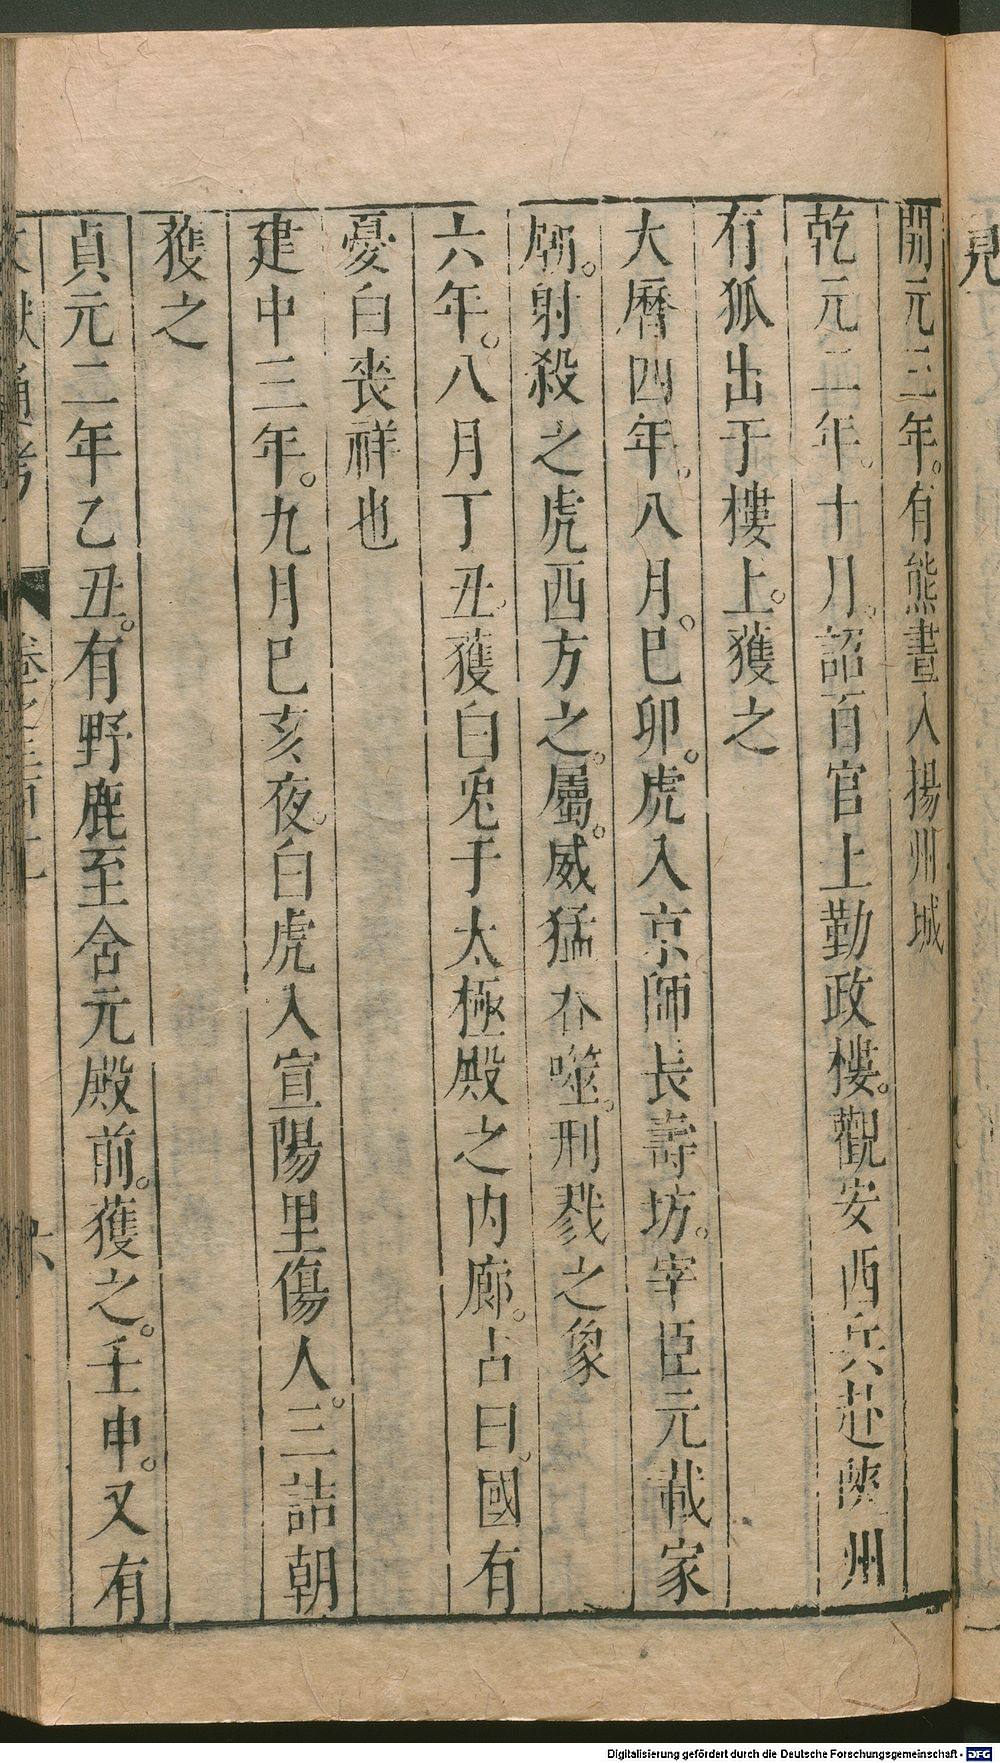 見
開元三年。有熊晝入揚州城
乾元二年。十月。詔百官上勤政樓。觀安西兵赴陝州
有狐出于樓上。獲之
大曆四年。八月。巳卯。虎入京師長壽坊。宰臣元載家
廟。射殺之虎西方之。屬。威猛吞噬。刑戮之象
六年。八月丁丑。獲白兎于太極殿之内廊。占曰。國有
憂白喪祥也
建中三年。九月巳亥夜。白虎入宣陽里傷人。三詰朝
獲之
貞元二年乙丑。有野鹿至含元殿前。獲之。壬申。又有
文獻通考
卷之三百十一
六
Digitalisierung gefördert durch die Deutsche Forschungsgemeinschaft - DFG